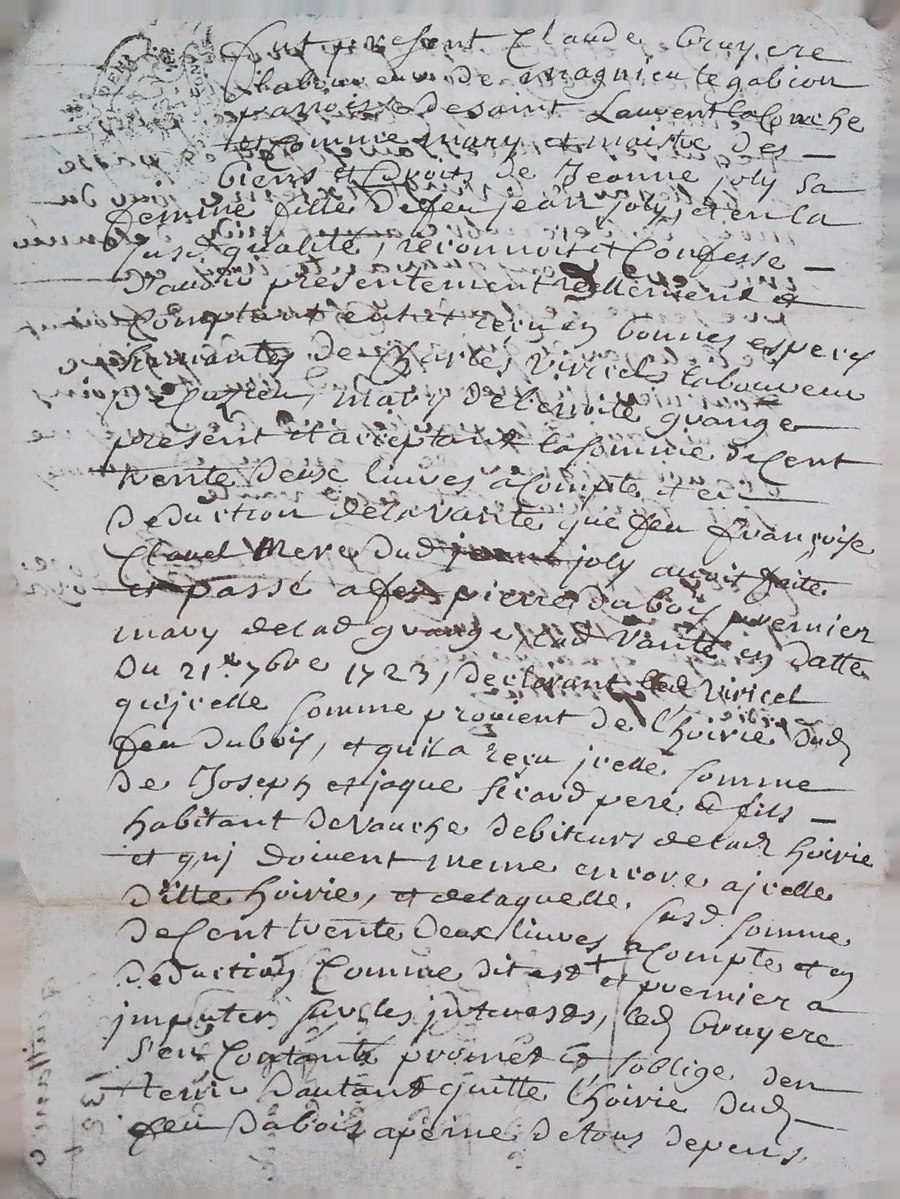 fut present Claude bruyere
laboureur de magnieu le gabion
parroisse de saint Laurent la Conche
et comme mary et maistre des
biens et droits de Jeanne joly sa
femme fille de feu jean joly, et en la
susd qualité, reconnoit et Confesse
d'avoir presentement reellement et
Comptant eu et reçu en bonnes especes
de Charles Viricel laboureur
mary de benoite grange
present et acceptant la somme de Cent
trente deux livres a Compte et en
deduction de la vante que feu françoise
Claud Mere dud joly avoit faite
et passé a feu pierre dubois premier
mary de lad grange, lad vante en datte
du 21e 7bre 1723, declarant led Viricel
qu'jcelle somme provient de l'hoirie dud
feu dubois, et qu'il a reçu jcelle somme
de Joseph et jaque sicaud pere et fils
habitant de vauche debiteurs de lad hoirie
et quj doivent meme encore a jcelle
ditte hoirie, et de laquelle susd somme
de Cent trente deux livres a Compte et en
deduction Comme dit est et premier a
jmputer sur les jnterests, led bruyere
s'en Contante promet et s'oblige d'en
tenir d'autant quitte l'hoirie dud
feu dubois a peine de tous depens